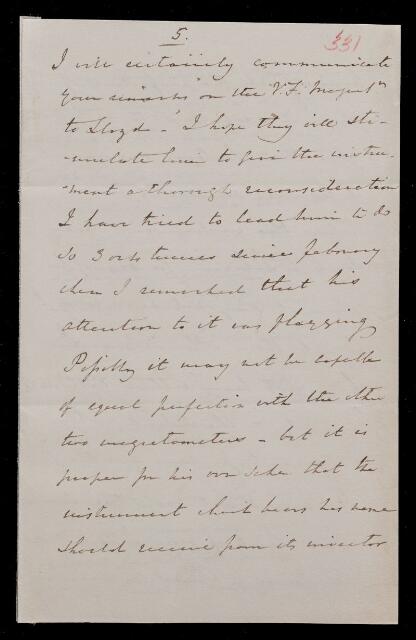 5.
331
I will certainly communicate
your remarks on the "V.F. Magnetr
to Lloyd - I hope they will sti-
-mulate him to give the instru-
-ment a thorough reconsideration
I have tried to lead him to do
so 3 or 4 times since February
when I remarked that his
attention to it was flagging
Possibly it may not be capable
of equal perfection with the other
two magnetometers - but it is
proper for his own sake that the
instrument which bears his name
should receive from its inventor